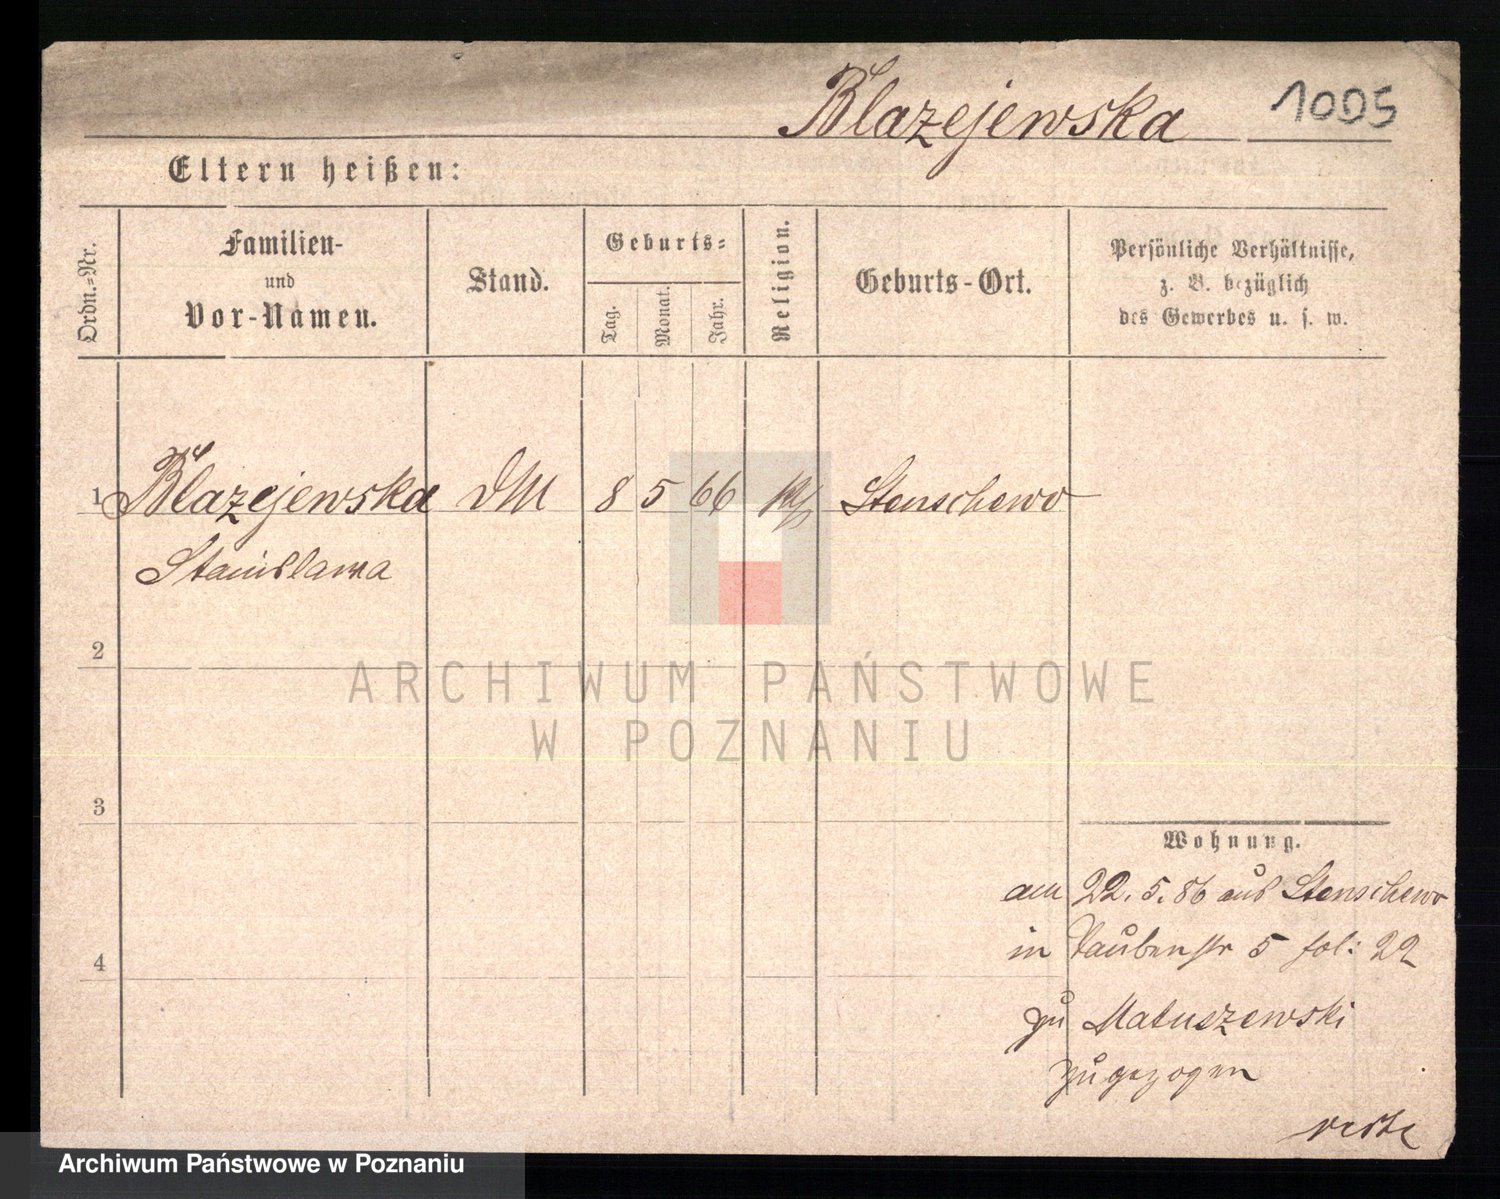 Blazejewska 1005
Eltern heißen:
Ordn.-Nr.
Familien-
und
Vor-Namen.
Stand.
Geburts-
Tag.
Monat.
Jahr.
Religion.
Geburts-Ort.
Persönliche Verhältnisse,
z. B. bezüglich
des Gewerbes u. s. w.
1 Blazejewska DM 8 5 66 Stenschewo
Stanislawa
2
3
4
Wohnung.
am 22. 5. 86 aus Stenschewo
in Taubenstr 5 fol: 22
zu Matuszewski
zugezogen
ARCHIWUM PAŃSTWOWE
W POZNANIU
Archiwum Państwowe w Poznaniu